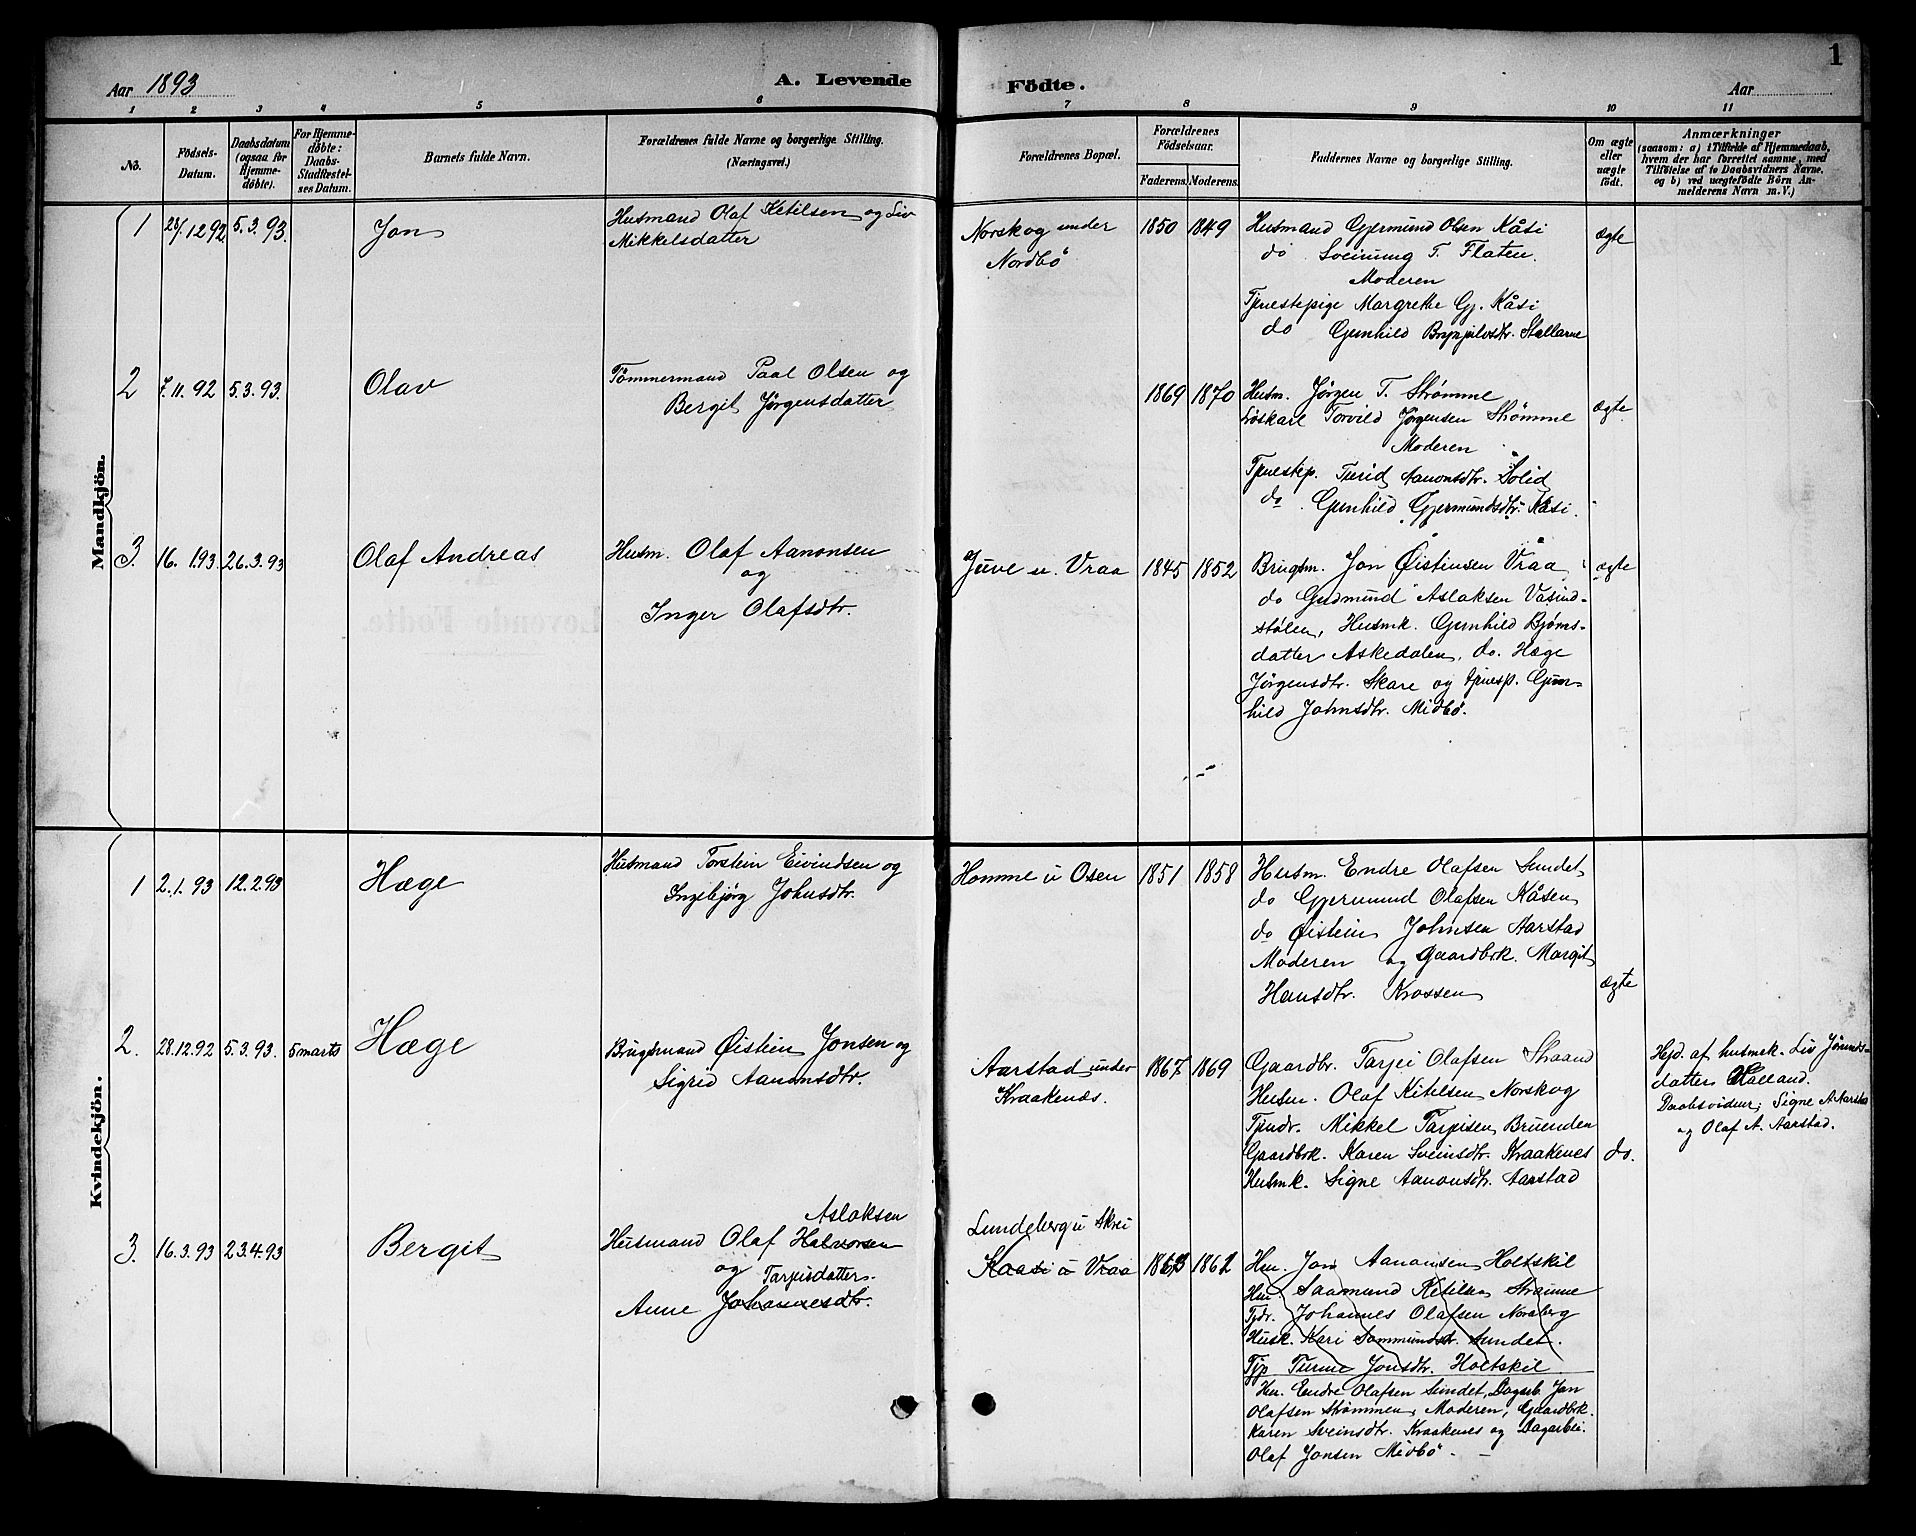 1
Aar 1893
A. Levende
Födte.
Aar
1 2 3 4 5 6 7 8 9 10 11
No.
Födsels-Datum.
Daabsdatum (ogsaa for Hjemmedöbte).
For Hjemmedöbte: Daabs-Stadfæstelses Datum.
Barnets fulde Navn.
Forældrenes fulde Navne og borgerlige Stilling. (Næringsvei.)
Forældrenes Bopæl.
Forældrenes Födselsaar.
Faderens. Moderens.
Faddernes Navne og borgerlige Stilling.
Om ægte eller uægte födt.
Anmærkninger
(saasom: a) i Tilfælde af Hjemmedaab,
hvem der har forrettet samme, med
Tilföielse af to Daabsvidners Navne,
og b) ved uægtefödte Börn Anmelderens Navn m. V.)
Mandkjön.
1 5.3.93. Jon
Husmand Olaf Ketilsen og Liv
Mikkelsdatter
Norskog under
Nordbö
1850 1849
Husmand Gjermund Olsen Kåsi
do Sveinung T. Flaten.
Moderen
Tjenestepige Margrethe Gj. Kåsi
do Gunhild Brynjulvsdtr. Stallarne
ægte
2 7.11.92 5.3.93. Olav
Tömmermand Paal Olsen og
Bergit Jørgensdatter
1869 1870
Husm. Jørgen T. Strømme
Løskarl Torvild Jørgensen Strømme
Moderen
Tjenestep. Turid Aanonsdtr. Solid
do Gunhild Gjermundsdtr. Kåsi.
ægte
3. 16.1.93 26.3.93 Olaf Andreas
Husm. Olaf Aanonsen
og
Inger Olafsdtr.
Juve u. Vraa
1845 1852
Brugsm. Jon Øistinsen Vråa
do Gudmund Aslaksen Vasind-
stølen, Husmk. Gunhild Bjørns-
datter Askedalen, do. Hæge
Jørgensdtr. Skare og tjenesp. Gun-
hild Johnsdtr. Midbö.
ægte
Kvindekjön.
1 2.1.93 12.2.93 Hæge
Husmand Torstein Eivindsen og
Ingebjørg Johnsdtr.
Homme u Osen
1851 1858
Husm. Endre Olafsen Sundet
do Gjermund Olafsen Kåsen
do Øistein Johnsen Aarstad
Moderen og Gaardbrk. Margit
Hansdtr. Krossen
ægte
2. 28.12.92 5.3.93. 5 marts Hæge
Brugsmand Øistein Jonsen og
Sigrid Aanonsdtr.
Aarstad under
Kraakenæs.
1867 1869
Gaardbr. Tarjei Olafsen Straand
Husm. Olaf Kitilsen Norskog
Tjndr. Mikkel Tarjeisen Bruenden
Gaardbrk. Karen Sveinsdtr. Kraakenes
Husmk. Signe Aanonsdtr. Aarstad
do.
Hjd. af husmek. Liv Jörunds-
datter Haaland.
Daabsvidner; Signe A. Aarstad
og Olaf A. Aarstad.
3. 16.3.93 23.4.93 Bergit
Aslaksen
Husmand Olaf Halvorsen
og Tarjeisdatter.
Anne Johannesdtr.
Lundeberg u Skrei
Kaasi u Vraa
1863 1862
Hm. Jon Aanonsen Holtskil
Hm. Saamund Kitilsen Strømme
Tjdr. Johannes Olafsen Norsberg
Husk. Kari Sammundsdtr. Sundet.
Tjp Turine Jonsdtr. Holtskil
Hm. Endre Olafsen Sundet, Dagarb. Jon
Olafsen Strømmen, Moderen, Gaardbrk.
Karen Sveinsdtr. Kraakenes og Dagarbei.
Olaf Jonsen Midbö.